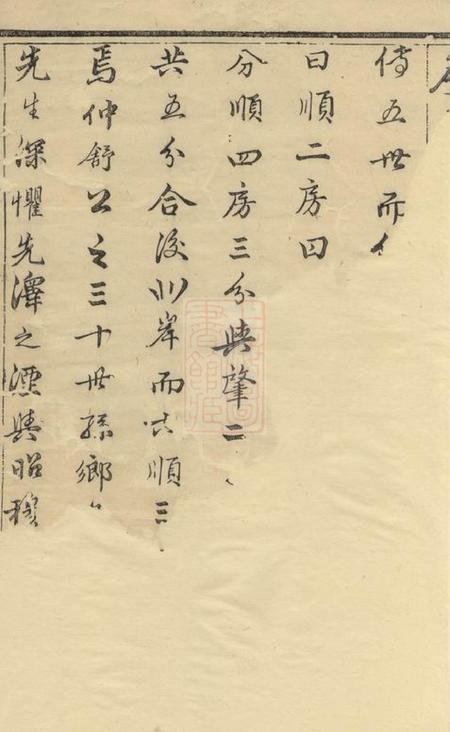 傳五世而
曰順二房曰
分順四房三分與肇二
共五分合後川岸而共順三
焉仲舒公之三十世孫鄉
先生深懼先澤之湮與昭穆